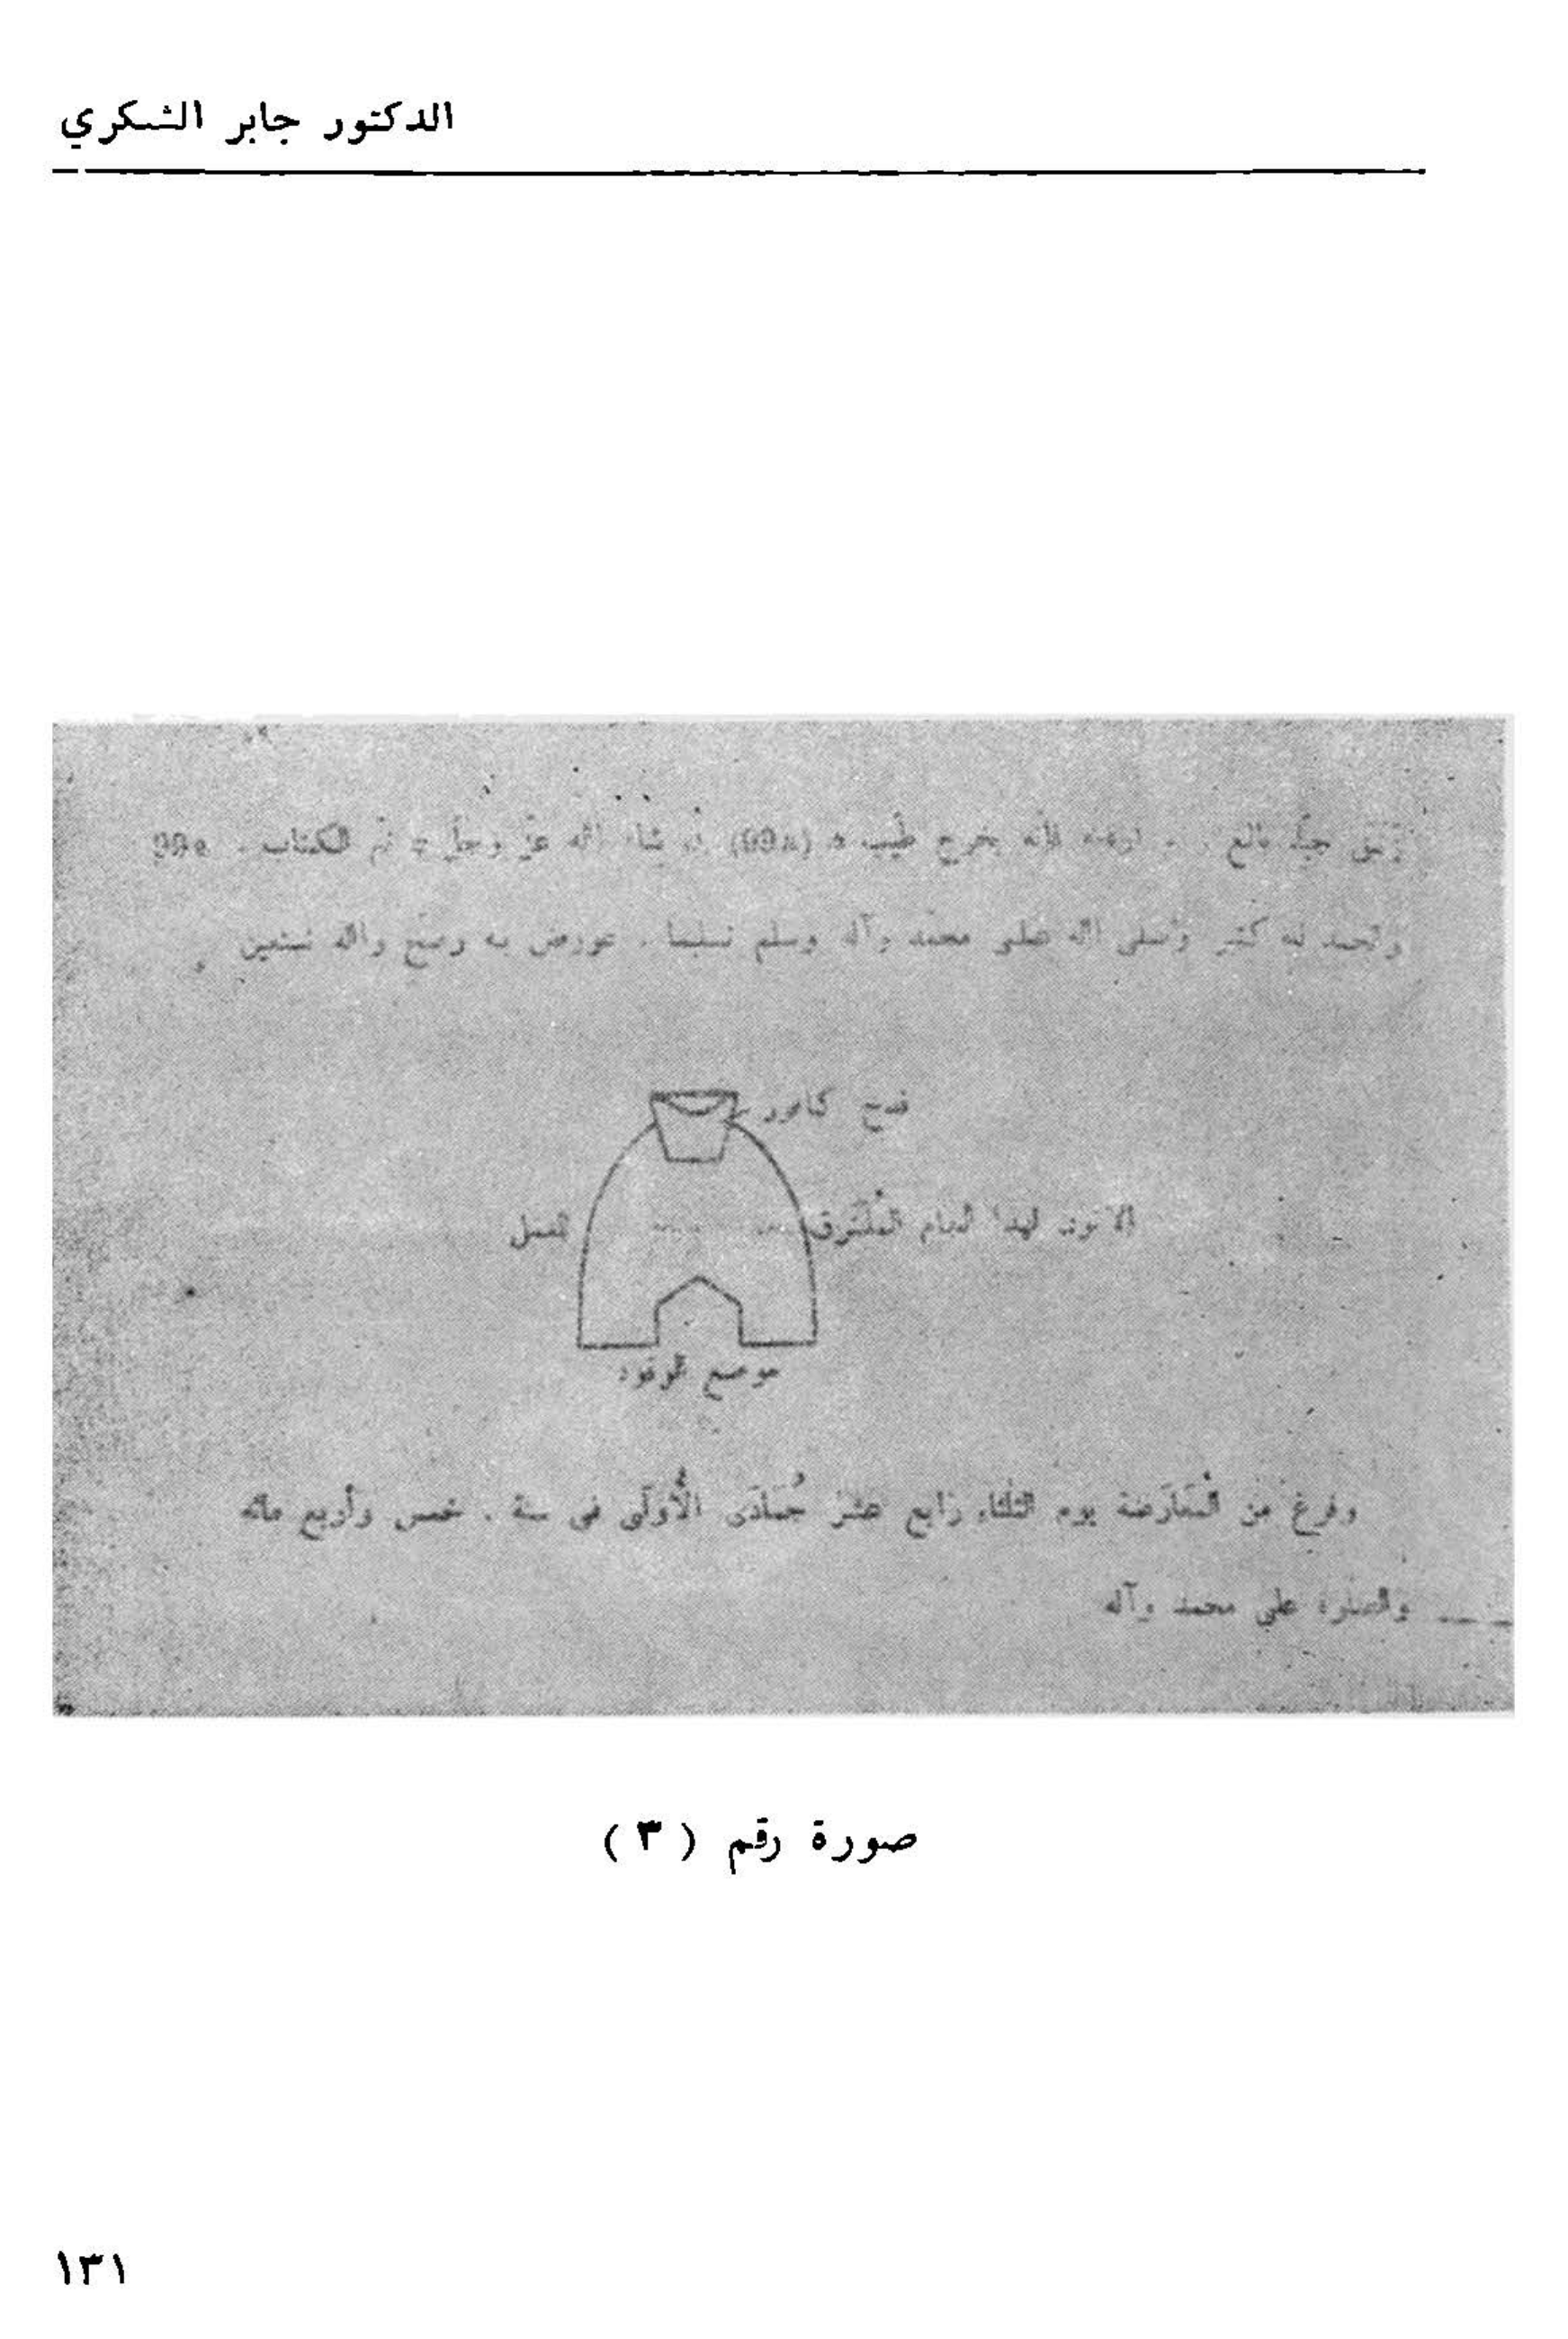 الدكتور جابر الشكري
جيّد بالغ . فإنه يخرج طيّب ان شاء الله عزّ وجلّ تم الكتاب .
والحمد لله وصلى الله على محمّد وآله وسلم تسليما . عورض به وصحّ والله نستعين
قدح كافور
لهذا
العسل
موضع الوقود
وفرغ من المُعَارَضة يوم الثلثاء رابع عشر جُمَادَى الأُولَى فى سنة . خمس وأربع مائه
والصلوة على محمد وآله
صورة رقم ( ٣ )
١٣١